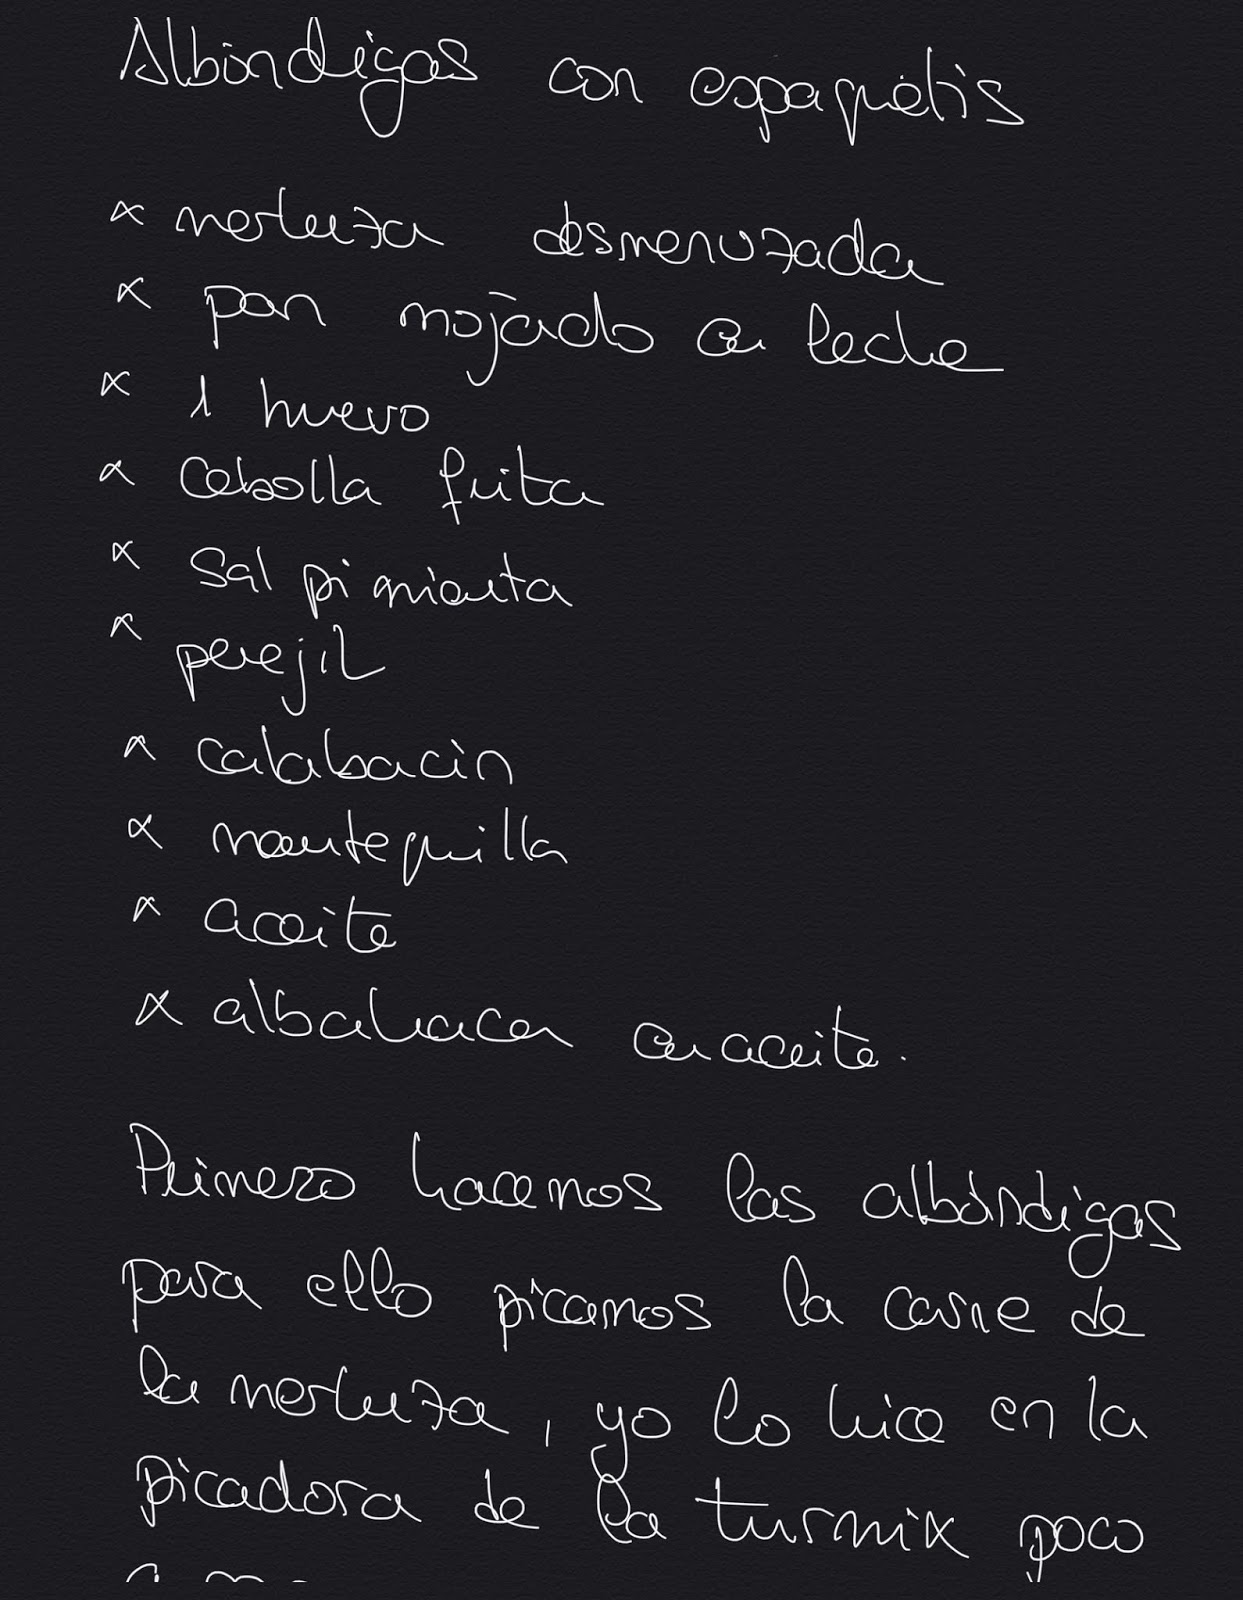 Albóndigas con espaguétis
x merluza desmenuzada
x pan mojado en leche
x 1 huevo
x Cebolla frita
x Sal pimienta
x perejil
x calabacín
x mantequilla
x aceite
x albahaca en aceite.
Primero hacemos las albóndigas
para ello picamos la carne de
la merluza, yo lo hice en la
picadora de la turmix poco